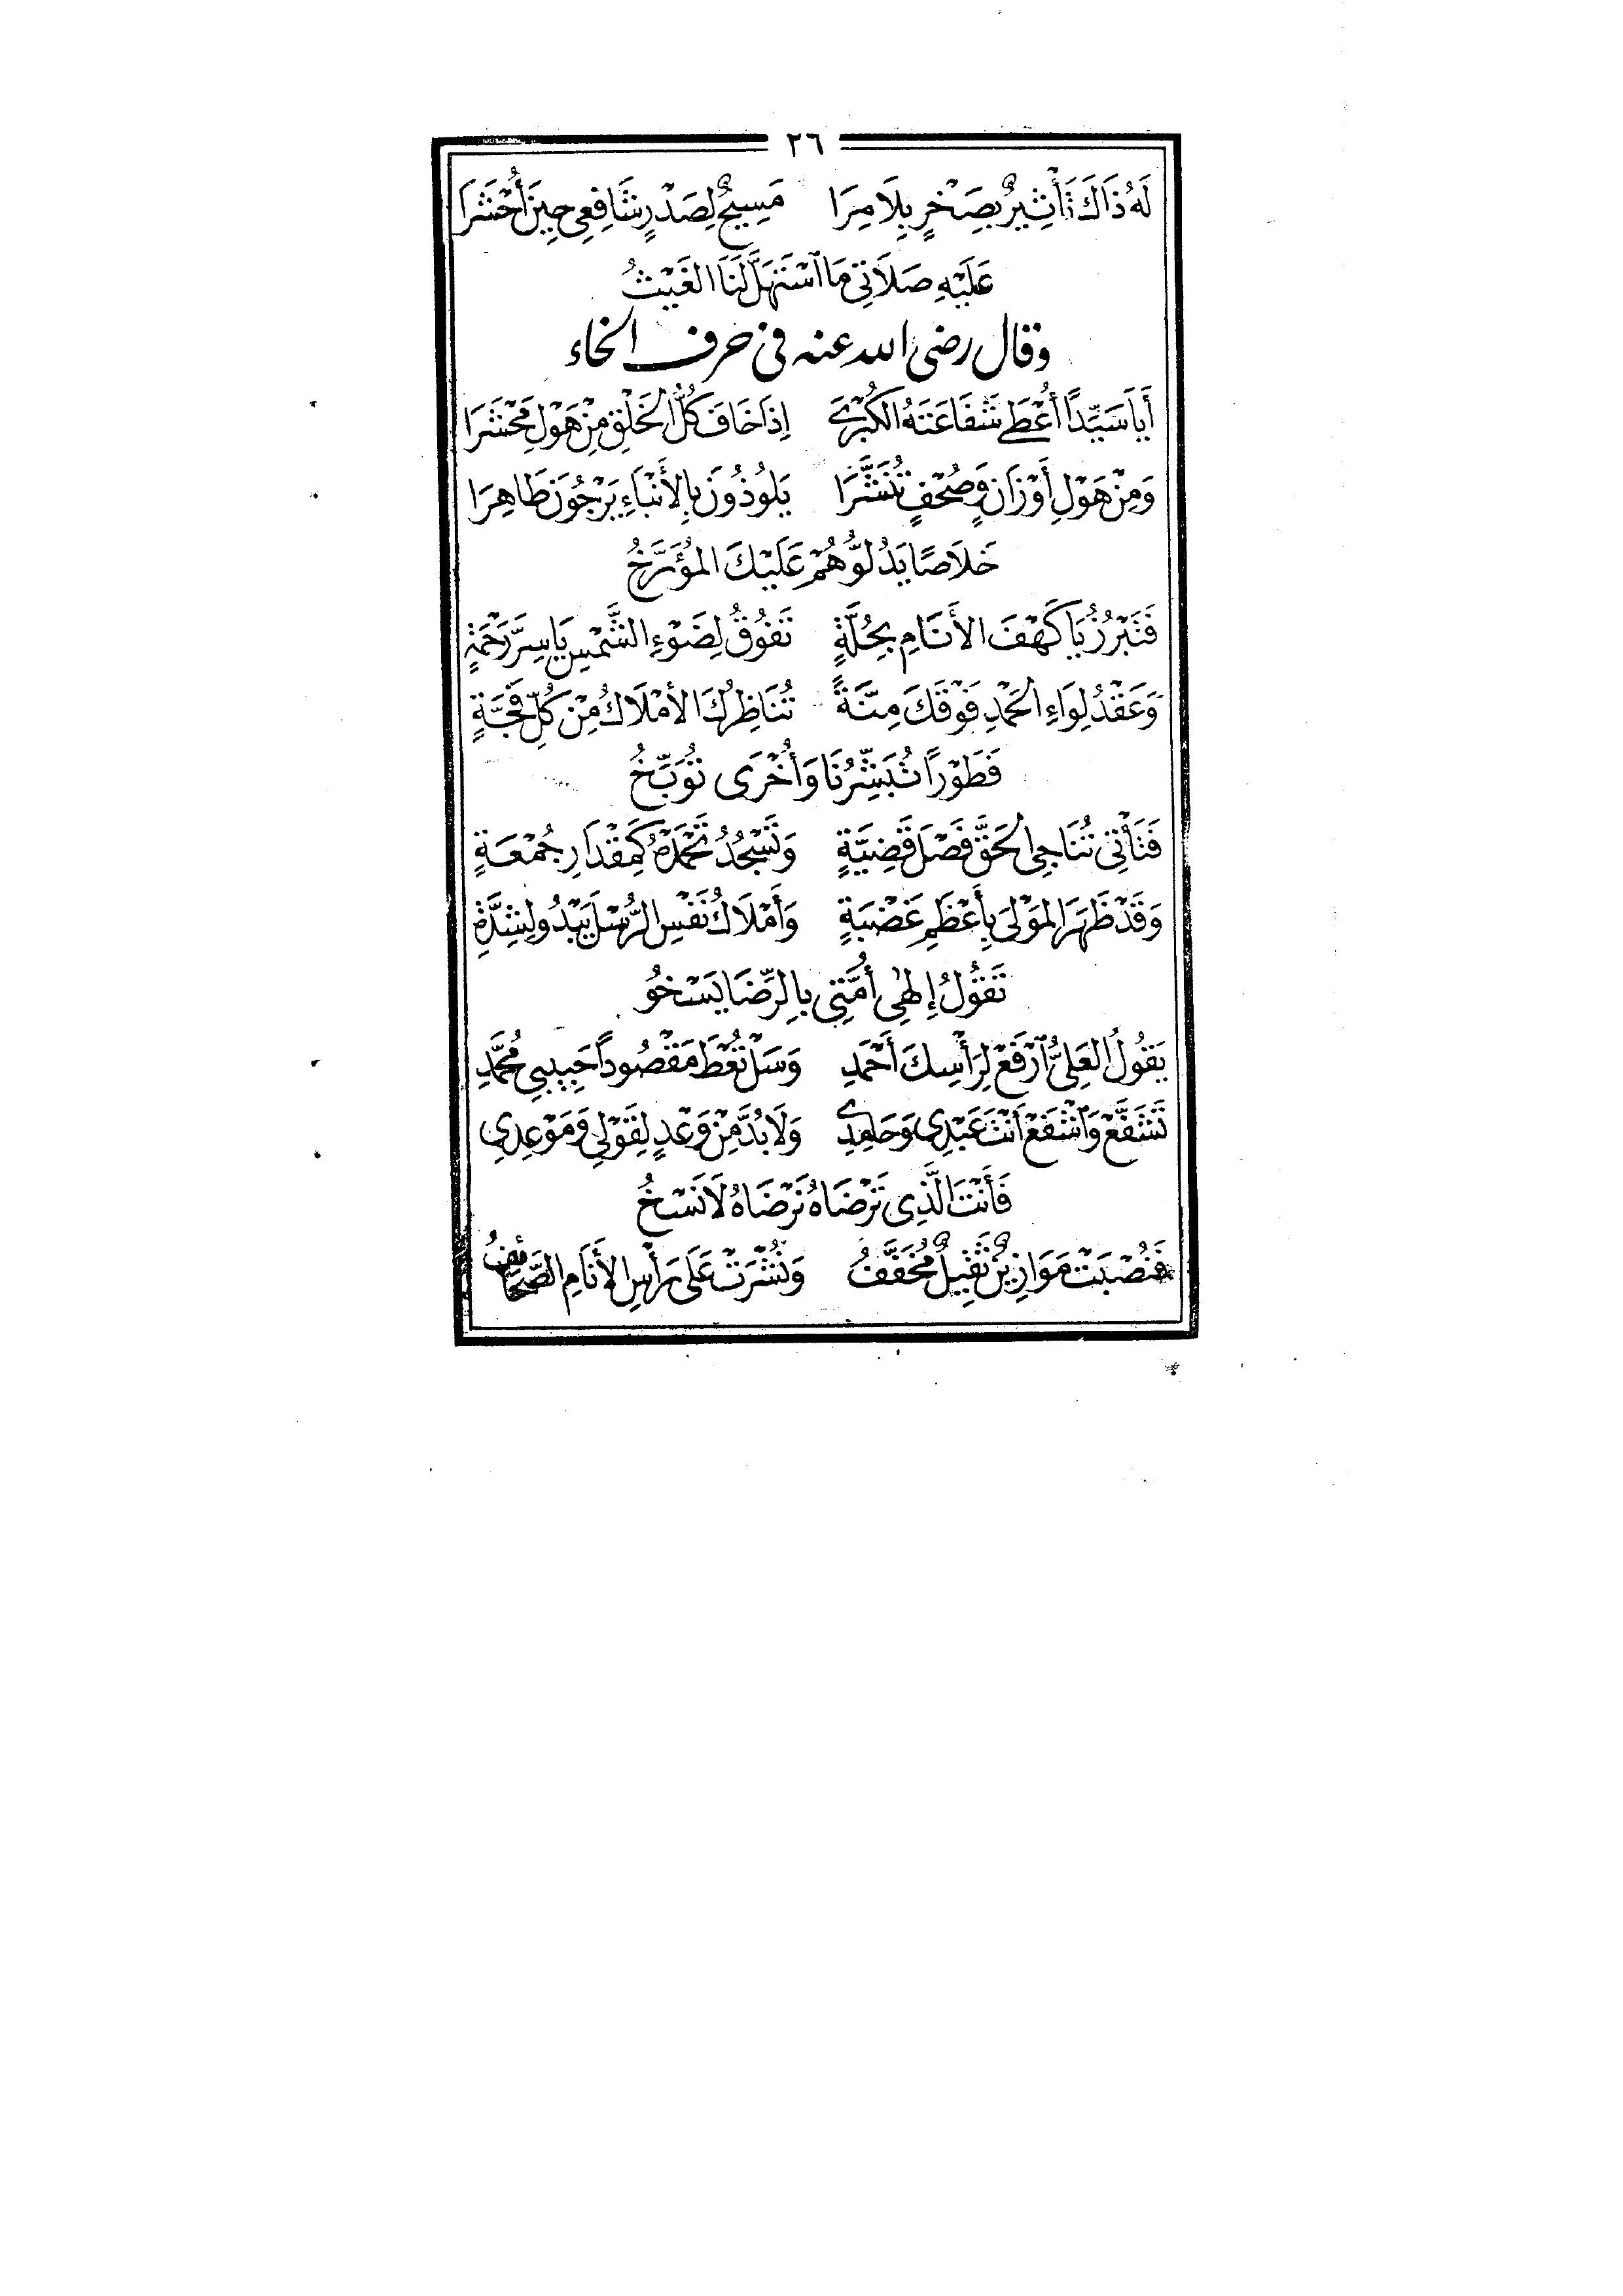 ٢٦
لَهُ ذَاكَ تَأْثِيرٌ بِصَخْرٍ بِلَا مِرَا مَسِيحٌ لِصَدْرٍ شَافِعِي حِينَ أُحْشَرَا
عَلَيْهِ صَلَاتِي مَا ٱسْتَهَلَّ لَنَا الغَيْثُ
وقال رضى الله عنه فى حرف الخاء
أَيَا سَيِّدًا أُعْطَى شَفَاعَتَهُ الكُبْرَى إِذَا خَافَ كُلُّ الخَلْقِ مِنْ هَوْلِ مَحْشَرَا
وَمِنْ هَوْلِ أَوْزَانٍ وَصُحْفٍ تُنَشَّرَا يَلُوذُونَ بِالأَنْبَاءِ يَرْجُونَ ظَاهِرَا
خَلَاصًا يَدُلُّوهُمْ عَلَيْكَ المُؤَرَّخُ
فَتَبْرُزُ يَا كَهْفَ الأَنَامِ بِحُلَّةٍ تَفُوقُ لِضَوْءِ الشَّمْسِ يَا سِرَّ رَحْمَةٍ
وَعَقْدُ لِوَاءِ الحَمْدِ فَوْقَكَ مِنَّةً تُنَاظِرُكَ الأَمْلَاكُ مِنْ كُلِّ فَجَّةٍ
فَطَوْرًا تُبَشِّرُنَا وَأُخْرَى تُوَبِّخُ
فَتَأْتِى تُنَاجِى الحَقَّ فَصْلَ قَضِيَّةٍ وَتَسْجُدُ تَحْمَدْهُ كَمِقْدَارِ جُمْعَةٍ
وَقَدْ ظَهَرَ المَوْلَى بِأَعْظَمِ غَضْبَةٍ وَأَمْلَاكُ نَفْسِ الرُّسْلِ يَبْدُو لِشِدَّةٍ
تَقُولُ إِلهِى أُمَّتِى بِالرِّضَا يَسْخُو
يَقُولُ العَلِىُّ ٱرْفَعْ لِرَأْسِكَ أَحْمَدِ وَسَلْ تُعْطَ مَقْصُودًا حَبِيبِي مُحَمَّدِ
تَشَفَّعْ وَٱشْفَعْ أَنْتَ عَبْدِى وَحَامِدِى وَلَا بُدَّ مِنْ وَعْدٍ لِقَوْلِي وَمَوْعِدِي
فَأَنْتَ الَّذِى تَرْضَاهُ نَرْضَاهُ لَا نَسْخُ
فَنُصْبَتْ مَوَازِينٌ ثَقِيلٌ مُخَفَّفُ وَنُشْرَتْ عَلَى رَأْسِ الأَنَامِ الصَّحَائِفُ